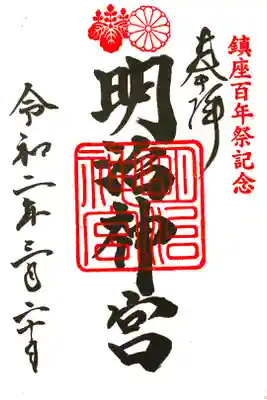 鎮座百年祭記念
奉拝
明治神宮
令和二年三月二十日